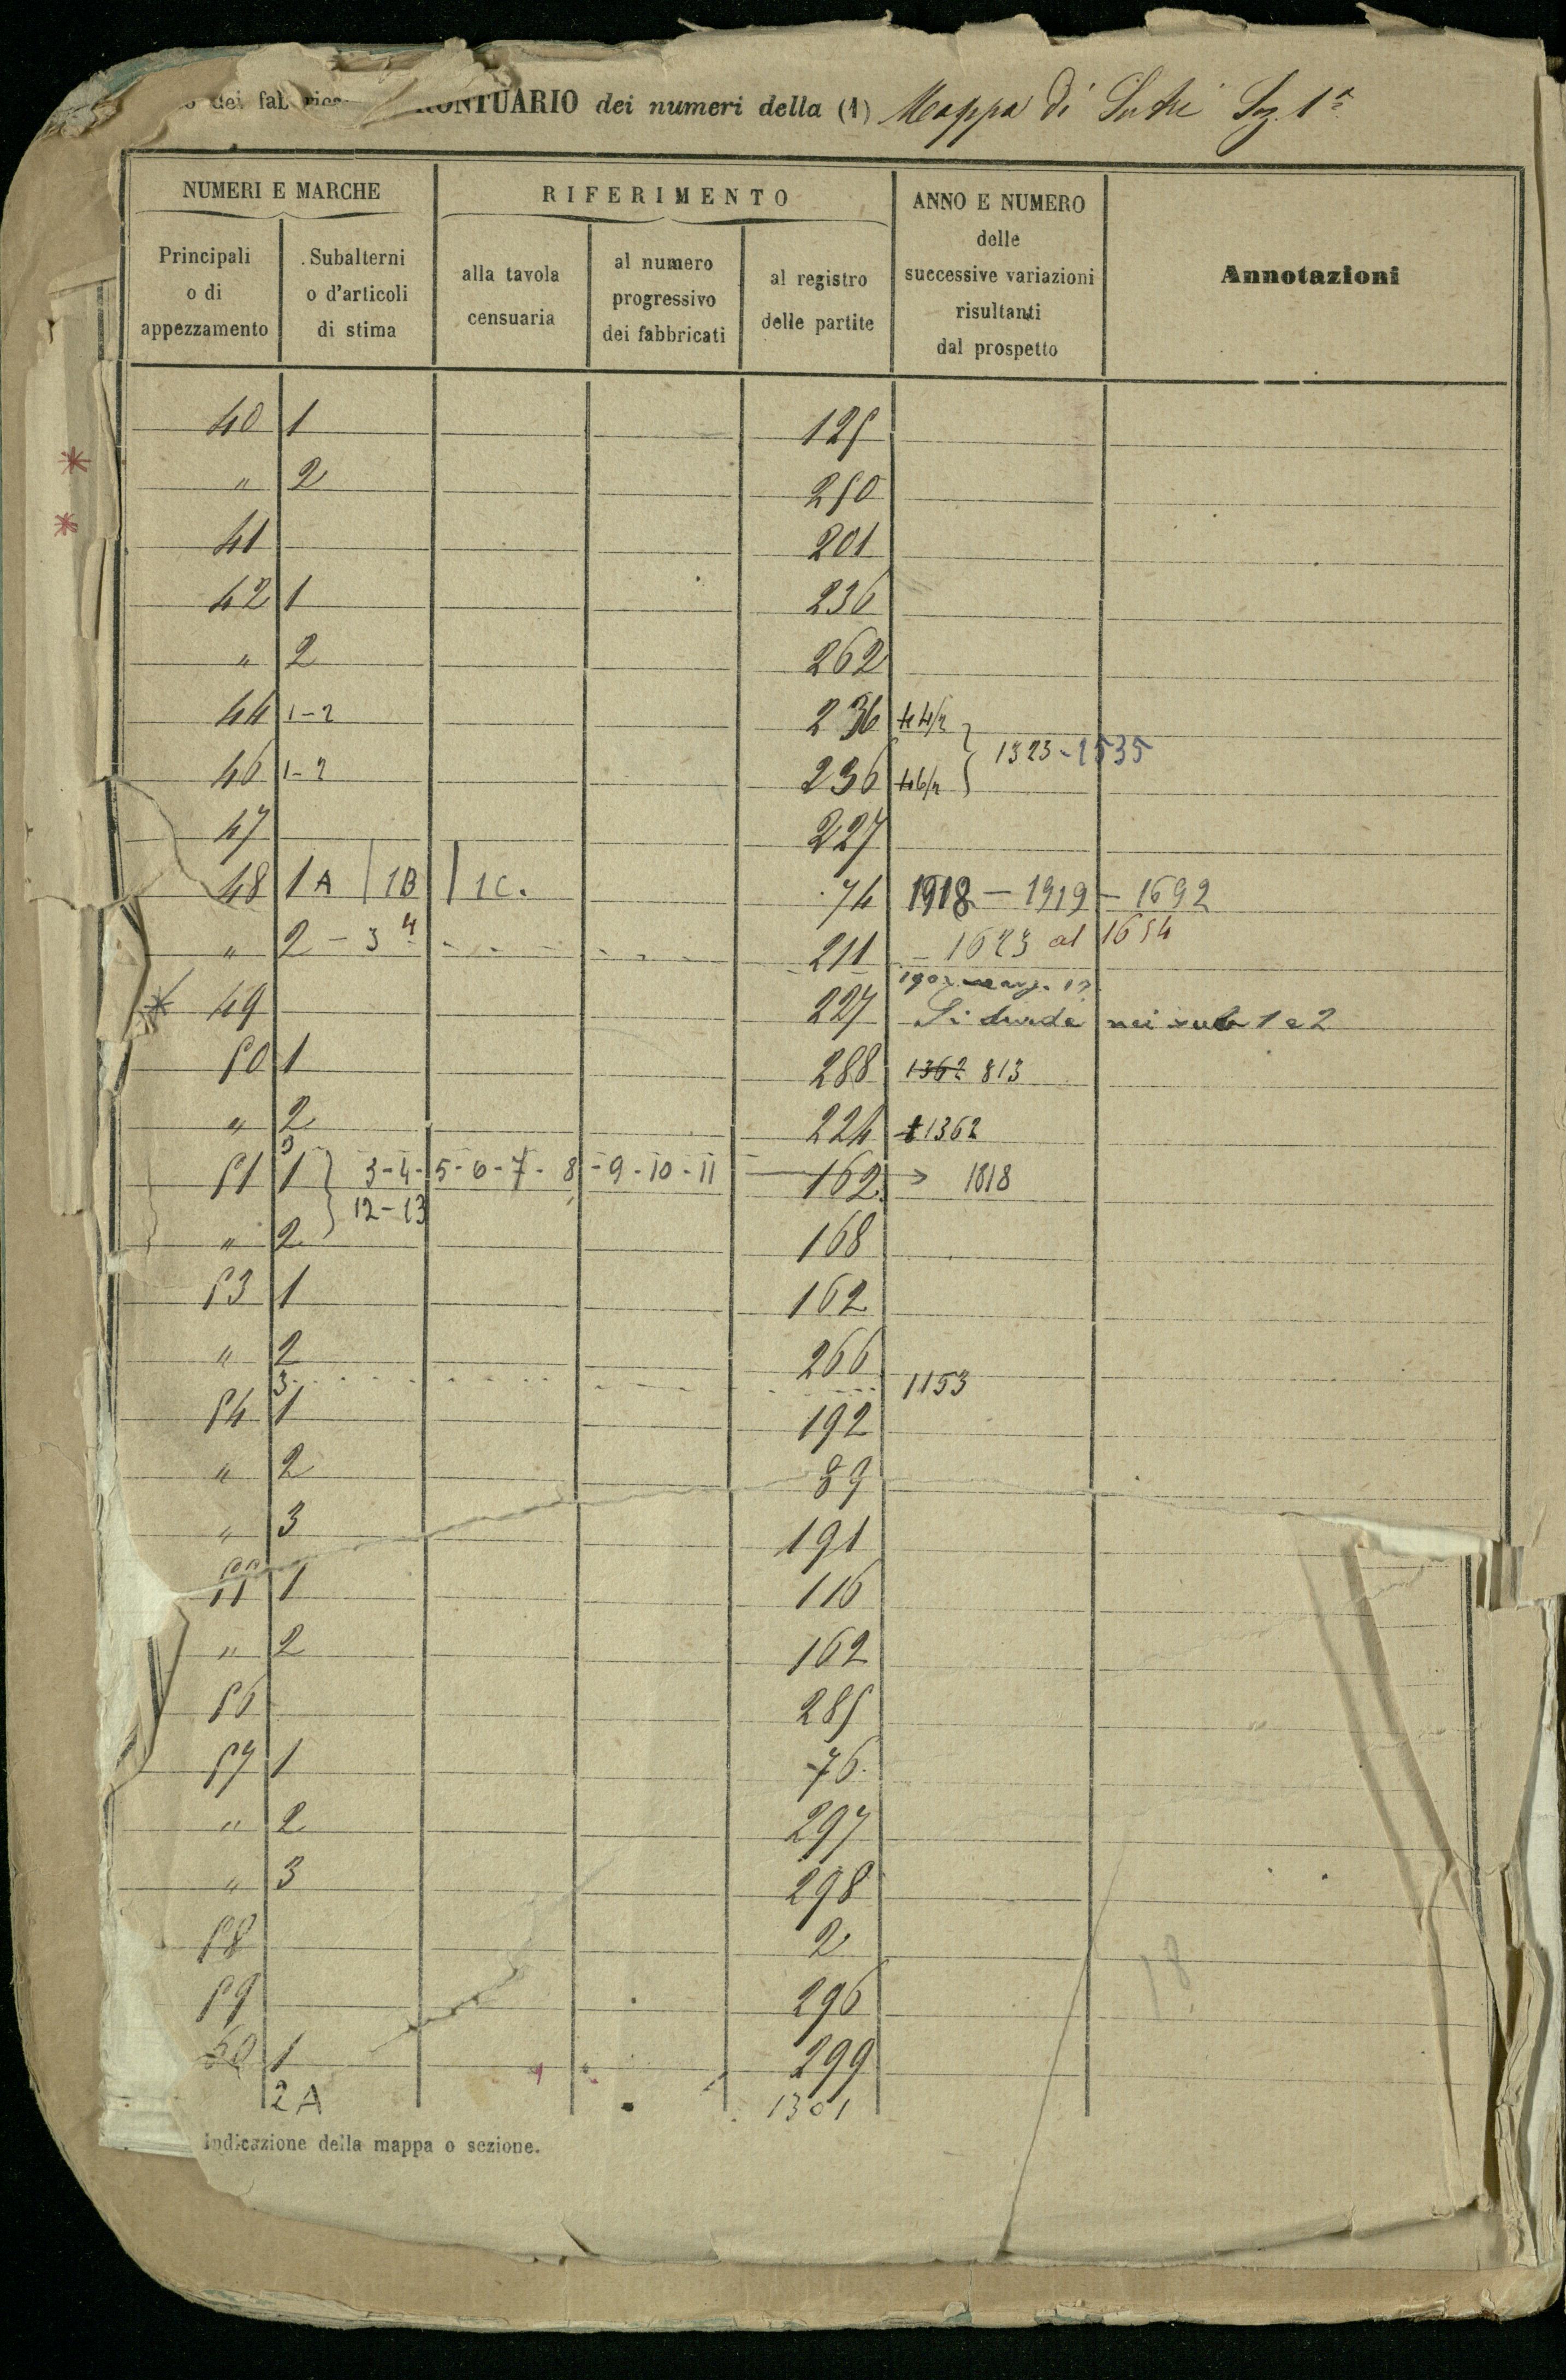 dei fab rica RONTUARIO dei numeri della (1) Mappa di Sutri Sez. 1ª
NUMERI E MARCHE RIFERIMENTO ANNO E NUMERO delle successive variazioni risultanti dal prospetto Annotazioni
Principali o di appezzamento Subalterni o d'articoli di stima alla tavola censuaria al numero progressivo dei fabbricati al registro delle partite
40 1 125
" 2 250
41 201
42 1 236
" 2 262
44 1-2 236 44/2
1323-1535
46 1-2 236 46/2
47 227
48 1A 1B 1C. 74 1918 - 1919 - 1692
" 2 - 3 4 211 - 1623 al 1654
1907
49 227 Si divide nei sub 1 e 2
50 1 288 1362 813
" 2 224 1362
3
51 1 3-4-5-6-7-8-9-10-11 162 1818
12-13
" 2 168
53 1 162
" 2 266
3 1153
54 1 192
" 2 89
" 3 191
55 1 116
" 2 162
56 285
57 1 76
" 2 297
" 3 298
58 2
59 296
18
60 1 299
2A 1301
Indicazione della mappa o sezione.